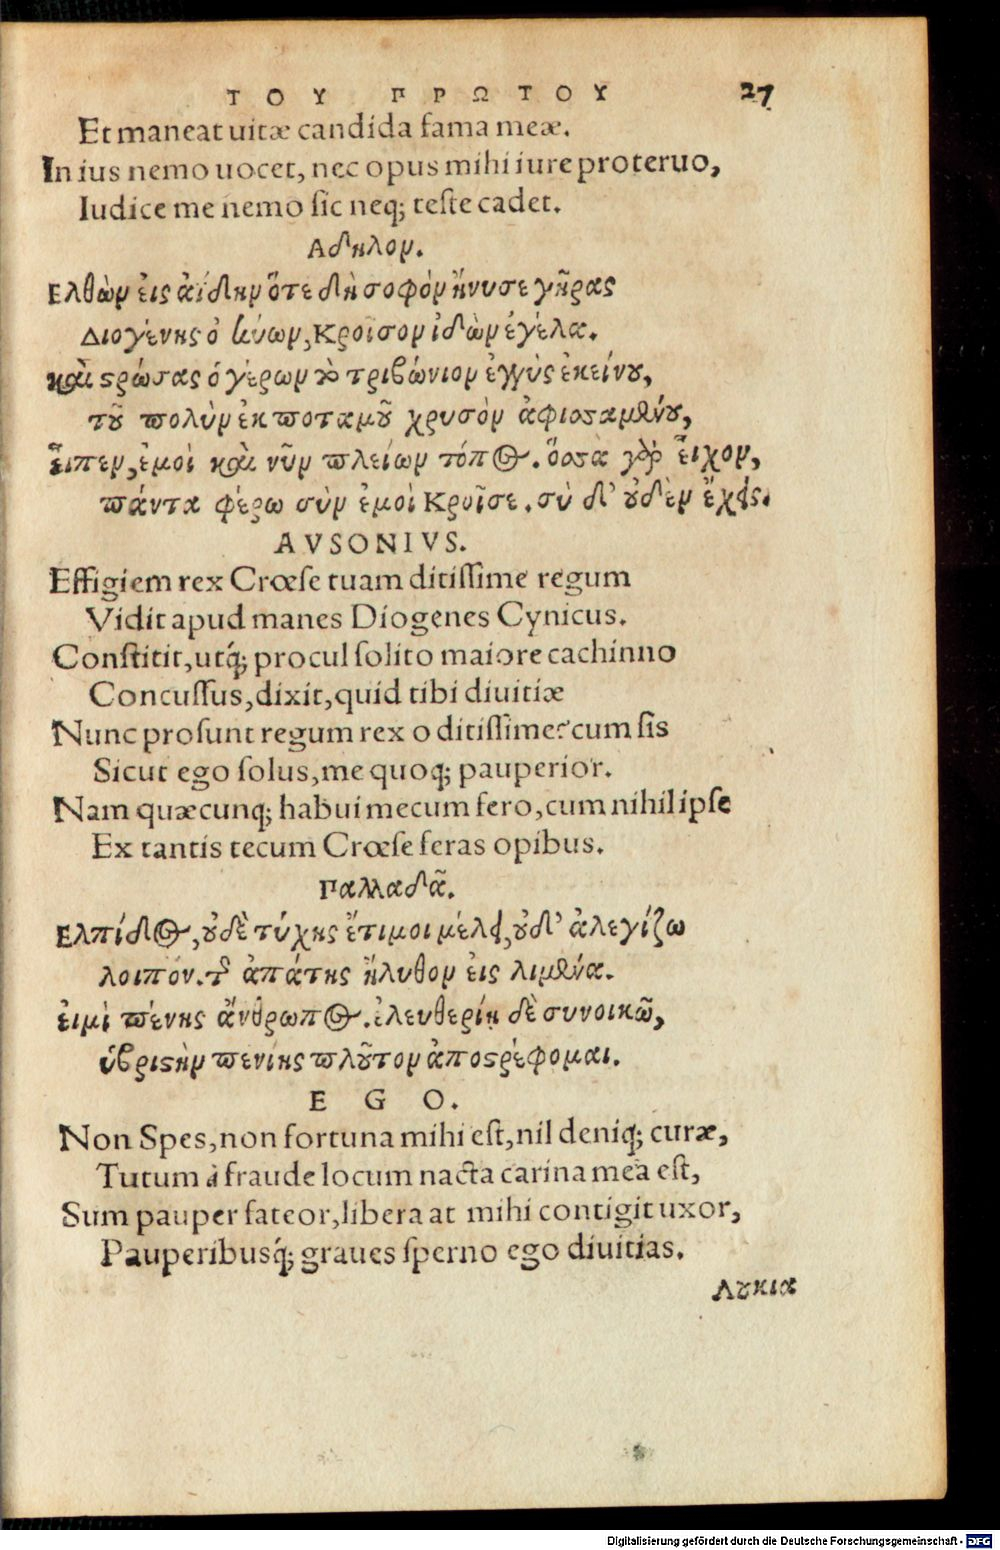 ΤΟΥ ΠΡΩΤΟΥ 27
Et maneat uitæ candida fama meæ.
In ius nemo uocet, nec opus mihi iure proteruo,
Iudice me nemo sic neq; teste cadet.
Αδηλον.
Ελθὼν εἰς ἀίδην ὅτε δὴ σοφὸν ἤνυσε γῆρας
Διογένης ὁ κύων, Κροῖσον ἰδὼν ἐγέλα.
καὶ ϛρώσας ὁ γέρων τὸ τριβώνιον ἐγγὺς ἐκείνου,
τοῦ πολὺν ἐκ ποταμοῦ χρυσὸν ἀφυσσαμένου,
εἶπεν, ἐμοὶ καὶ νῦν πλείων τόπος. ὅσσα γὰρ εἶχον,
πάντα φέρω σὺν ἐμοὶ Κροῖσε. σὺ δ' οὐδὲν ἔχεις.
AVSONIVS.
Effigiem rex Crœse tuam ditissime regum
Vidit apud manes Diogenes Cynicus.
Constitit, utq́; procul solito maiore cachinno
Concussus, dixit, quid tibi diuitiæ
Nunc prosunt regum rex o ditissime? cum sis
Sicut ego solus, me quoq; pauperior.
Nam quæcunq; habui mecum fero, cum nihil ipse
Ex tantis tecum Crœse feras opibus.
Παλλαδᾶ.
Ελπίδος, οὐδὲ τύχης ἔτι μοι μέλει, οὐδ' ἀλεγίζω
λοιπόν. τῆς ἀπάτης ἤλυθον εἰς λιμένα.
εἰμὶ πένης ἄνθρωπος. ἐλευθερίῃ δὲ συνοικῶ,
ὑβριϛὴν πενίης πλοῦτον ἀποϛρέφομαι.
EGO.
Non Spes, non fortuna mihi est, nil deniq; curæ,
Tutum à fraude locum nacta carina mea est,
Sum pauper fateor, libera at mihi contigit uxor,
Pauperibusq́; graues sperno ego diuitias.
Λουκια
Digitalisierung gefördert durch die Deutsche Forschungsgemeinschaft - DFG